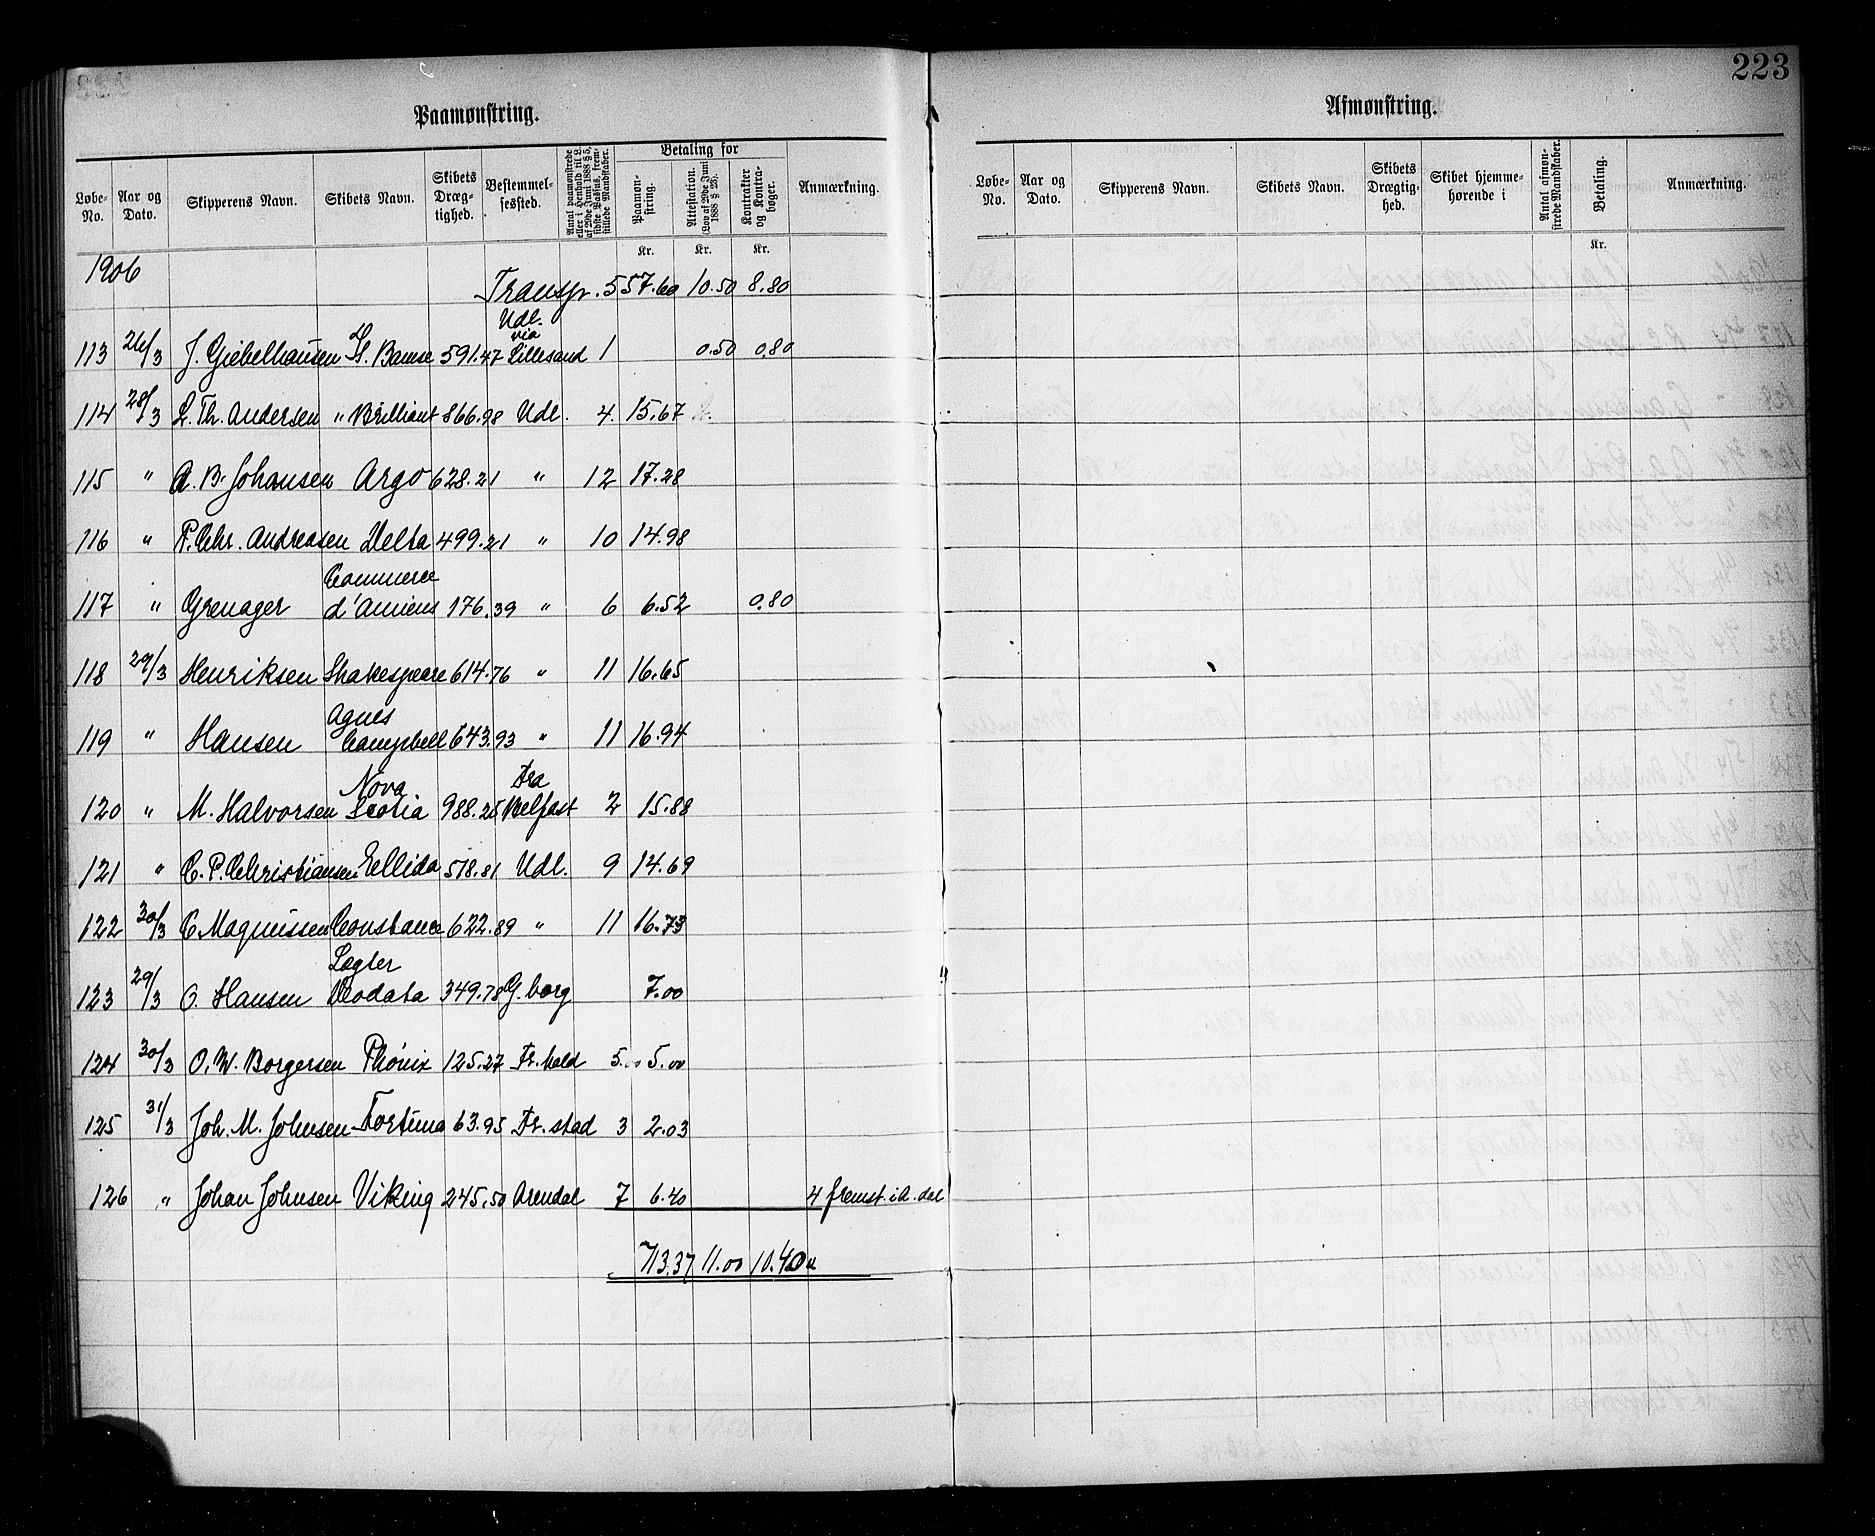 223
Paamønstring.
Løbe-No. Aar og Dato. Skipperens Navn. Skibets Navn. Skibets Dræg-tighed. Bestemmel-sessted. Antal paamønstrede eller i Henhold til L. af 29de Juni 1888 § 5, sidste Passus, frem-stillede Mandskaber. Betaling for Paamøn-string. Attestation. (Lov af 29de Juni 1888 § 28). Kontrakter og Kontra-bøger. Anmærkning.
Kr. Kr. Kr.
1906
Transp. 557.60 10.50 8.80
113 26/3 J. Giebelhausen S. Bamse 591.47 Udl. via Lillesand 1 0.50 0.80
114 28/3 L. Th. Andersen " Brilliant 866.98 Udl. 4. 15.67
115 " A. B. Johansen Argo 628.21 " 12 17.28
116 " P. Chr. Andreasen Delta 499.21 " 10 14.98
117 " Grenager Commerce d'Amiens 176.39 " 6 6.52 0.80
118 29/3 Henriksen Shakespeare 614.76 " 11 16.65
119 " Hansen Agnes Campbell 643.93 " 11 16.94
120 " M. Halvorsen Nova Scotia 988.25 Fra Belfast 2 15.88
121 " C. P. Christiansen Ellida 518.81 Udl. 9 14.69
122 30/3 C Magnussen Constance 622.89 " 11 16.73
123 29/3 O. Hansen Lægter Deodata 349.78 G. borg 7.00
124 30/3 O. W. Borgersen Phönix 125.27 Fr. hald 5.00 5.00
125 31/3 Joh. M. Johnsen Fortuna 63.95 Fr. stad 3 2.03
126 " Johan Johnsen Viking 245.50 Arendal 7 6.40 4 fremst. i A. dal
713.37 11.00 10.40
Afmønstring.
Løbe-No. Aar og Dato. Skipperens Navn. Skibets Navn. Skibets Drægtig-hed. Skibet hjemme-hørende i Antal afmøn-strede Mandskaber. Betaling. Anmærkning.
Kr.